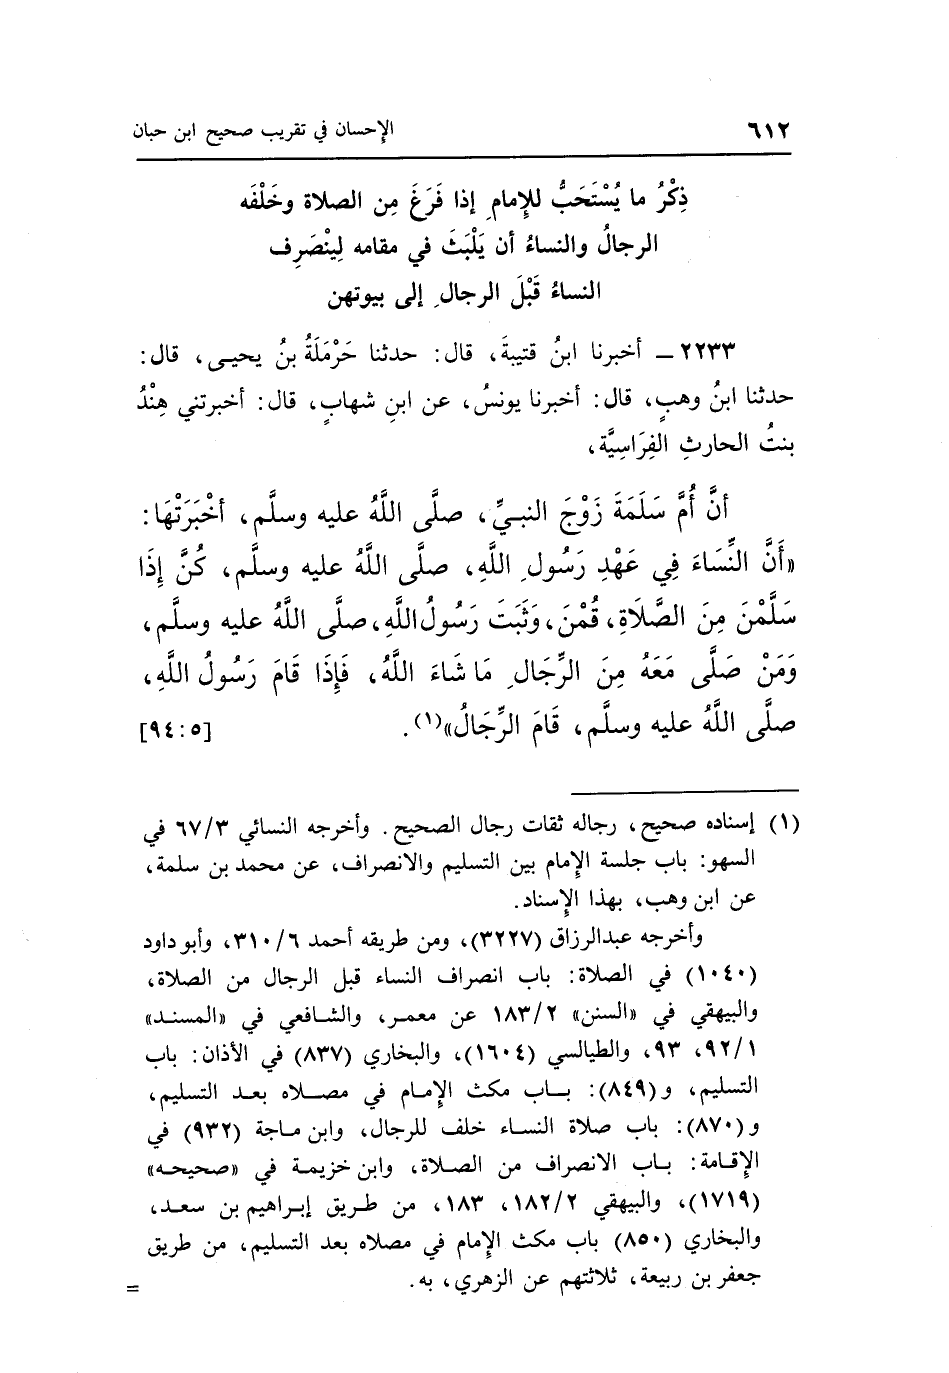 ٦١٢ الإحسان في تقريب صحيح ابن حبان
ذِكْرُ ما يُسْتَحَبُّ للإِمامِ إذا فَرَغَ مِن الصلاة وخَلْفَه
الرجالُ والنساءُ أن يَلْبَثَ في مقامه لِيَنْصَرِف
النساءُ قَبْلَ الرجالِ إلى بيوتهن
٢٢٣٣ ــ أخبرنا ابنُ قتيبةَ، قال: حدثنا حَرْمَلَةُ بنُ يحيـى، قال:
حدثنا ابنُ وهبٍ، قال: أخبرنا يونسُ، عن ابنِ شهابٍ، قال: أخبرتني هِنْدُ
بنتُ الحارثِ الفِرَاسِيَّة،
أنَّ أُمَّ سَلَمَةَ زَوْجَ النبـيِّ، صلَّى اللَّهُ عليه وسلَّم، أخْبَرَتْهَا:
«أَنَّ النِّسَاءَ فِي عَهْدِ رَسُولِ اللَّهِ، صلَّى اللَّهُ عليه وسلَّم، كُنَّ إِذَا
سَلَّمْنَ مِنَ الصَّلَاةِ، قُمْنَ، وَثَبَتَ رَسُولُ اللَّهِ، صلَّى اللَّهُ عليه وسلَّم،
وَمَنْ صَلَّى مَعَهُ مِنَ الرِّجَالِ مَا شَاءَ اللَّهُ، فَإِذَا قَامَ رَسُولُ اللَّهِ،
صلَّى اللَّهُ عليه وسلَّم، قَامَ الرِّجَالُ»(١). [٩٤:٥]
(١) إسناده صحيح، رجاله ثقات رجال الصحيح. وأخرجه النسائي ٦٧/٣ في
السهو: باب جلسة الإِمام بين التسليم والانصراف، عن محمد بن سلمة،
عن ابن وهب، بهذا الإِسناد.
وأخرجه عبدالرزاق (٣٢٢٧)، ومن طريقه أحمد ٣١٠/٦، وأبو داود
(١٠٤٠) في الصلاة: باب انصراف النساء قبل الرجال من الصلاة،
والبيهقي في «السنن» ١٨٣/٢ عن معمر، والشافعي في «المسند»
٩٢/١، ٩٣، والطيالسي (١٦٠٤)، والبخاري (٨٣٧) في الأذان: باب
التسليم، و(٨٤٩): بـاب مكث الإِمـام في مصـلاه بعـد التسليم،
و(٨٧٠): باب صلاة النساء خلف للرجال، وابن ماجة (٩٣٢) في
الإِقـامة: بـاب الانصراف من الصـلاة، وابن خزيمـة في «صحيحـه»
(١٧١٩)، والبيهقي ١٨٢/٢، ١٨٣، من طـريق إبـراهيم بن سعـد،
والبخاري (٨٥٠) باب مكث الإِمام في مصلاه بعد التسليم، من طريق
جعفر بن ربيعة، ثلاثتهم عن الزهري، به. =